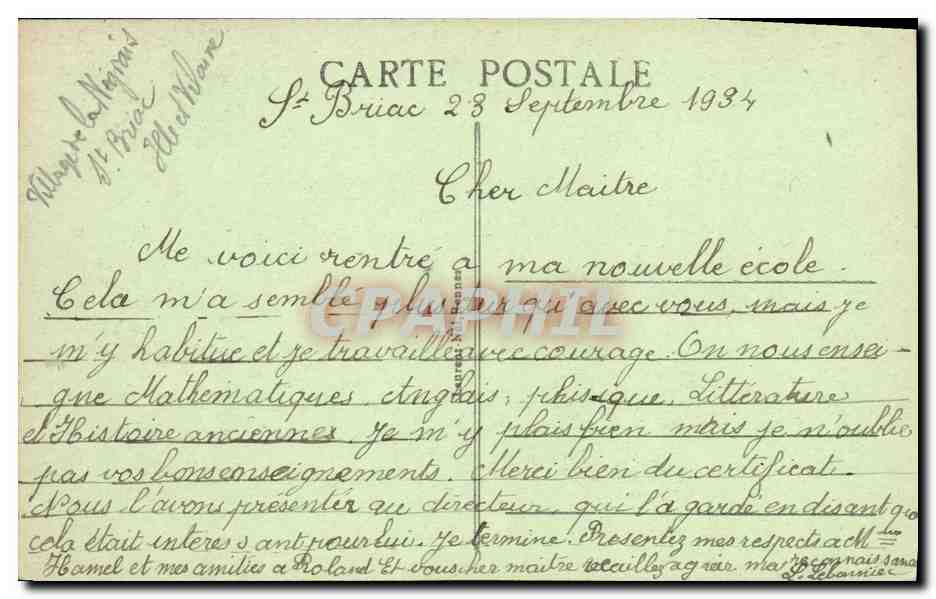 Village de la
St Briac
Ille et Vilaine
CARTE POSTALE
St Briac 23 Septembre 1934
Cher Maitre
Me voici rentré a ma nouvelle école.
Cela m'a semblé plus dur qu'avec vous, mais je
m'y habitue et je travaille avec courage. On nous ensei-
gne Mathématiques, Anglais, phisique, Littérature
et Histoire anciennes. Je m'y plais bien mais je n'oublie
pas vos bons enseignements. Merci bien du certificat.
Nous l'avons présenter au directeur, qui l'a gardé en disant que
cela était interessant pour lui. Je termine. Presentez mes respects a Mme
Hamel et mes amitiés a Roland Et vous cher maitre veuillez agréer ma reconnaissance
L. Lebarnier
Laurent Nel, Rennes
CPAPHIL